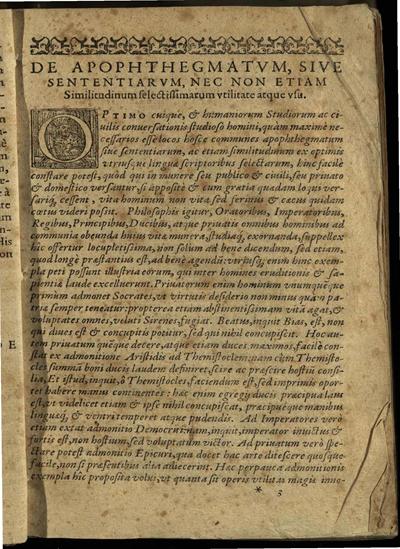 DE APOPHTHEGMATVM, SIVE
SENTENTIARVM, NEC NON ETIAM
Similitudinum selectissimarum vtilitate atque vsu.
OPTIMO cuique, & humaniorum Studiorum ac ci-
uilis conuersationis studioso homini, quàm maximè ne-
cessarios esse locos hosce communes apophthegmatum
siue sententiarum, ac etiam similitudinum ex optimis
vtriusque linguæ scriptoribus selectarum, hinc facilè
constare potest, quòd qui in munere seu publico & ciuili, seu priuato
& domestico versantur, si appositè & cum gratia quadam loqui ver-
sariq; cessent, vita hominum non vita, sed ferinus & cæcus quidam
cœtus videri possit. Philosophis igitur, Oratoribus, Imperatoribus,
Regibus, Principibus, Ducibus, atque priuatis omnibus hominibus ad
communia obeunda huius vitæ munera, studiaq; exornanda, suppellex
hîc offertur locupletissima, non solùm ad bene dicendum, sed etiam,
quod longè præstantius est, ad benè agendum: vtriusq; enim hinc exem-
pla peti possunt illustria eorum, qui inter homines eruditionis & sa-
pientiæ laude excelluerunt. Priuatorum enim hominum vnumquemque
primùm admonet Socrates, vt virtutis desiderio non minus quàm pa-
triæ semper teneatur: propterea etiam abstinentissimam vitã agat, &
voluptates omnes, velut Sirenes, fugiat. Beatus, inquit Bias, est, non
qui diues est & concupitis potitur, sed qui nihil concupiscit. Hoc au-
tem priuatum quemque decere, atque etiam duces maximos, facilè con-
stat ex admonitione Aristidis ad Themistoclem, quam cùm Themisto-
cles summã boni ducis laudem definiret, scire ac præscire hostiũ consi-
lia, Et istud, inquit, ô Themistocles, faciendum est, sed imprimis opor-
tet habere manus continentes: hac enim egregij ducis præcipua laus
est, vt videlicet etiam & ipse nihil concupiscat, præcipuéque manibus
linguaq;, & ventri temperet atque pudendis. Ad Imperatores verò
etiam extat admonitio Democriti, nam, inquit, imperator inuictus &
fortis est, non hostium, sed voluptatum victor. Ad priuatum verò spe-
ctare potest admonitio Epicuri, qua docet hac arte ditescere quosque
facile, non si præsentibus alia adiecerint. Hac perpauca admonitionis
exempla hîc proposita volui, vt quanta sit operis vtilitas magis inno-
* 3